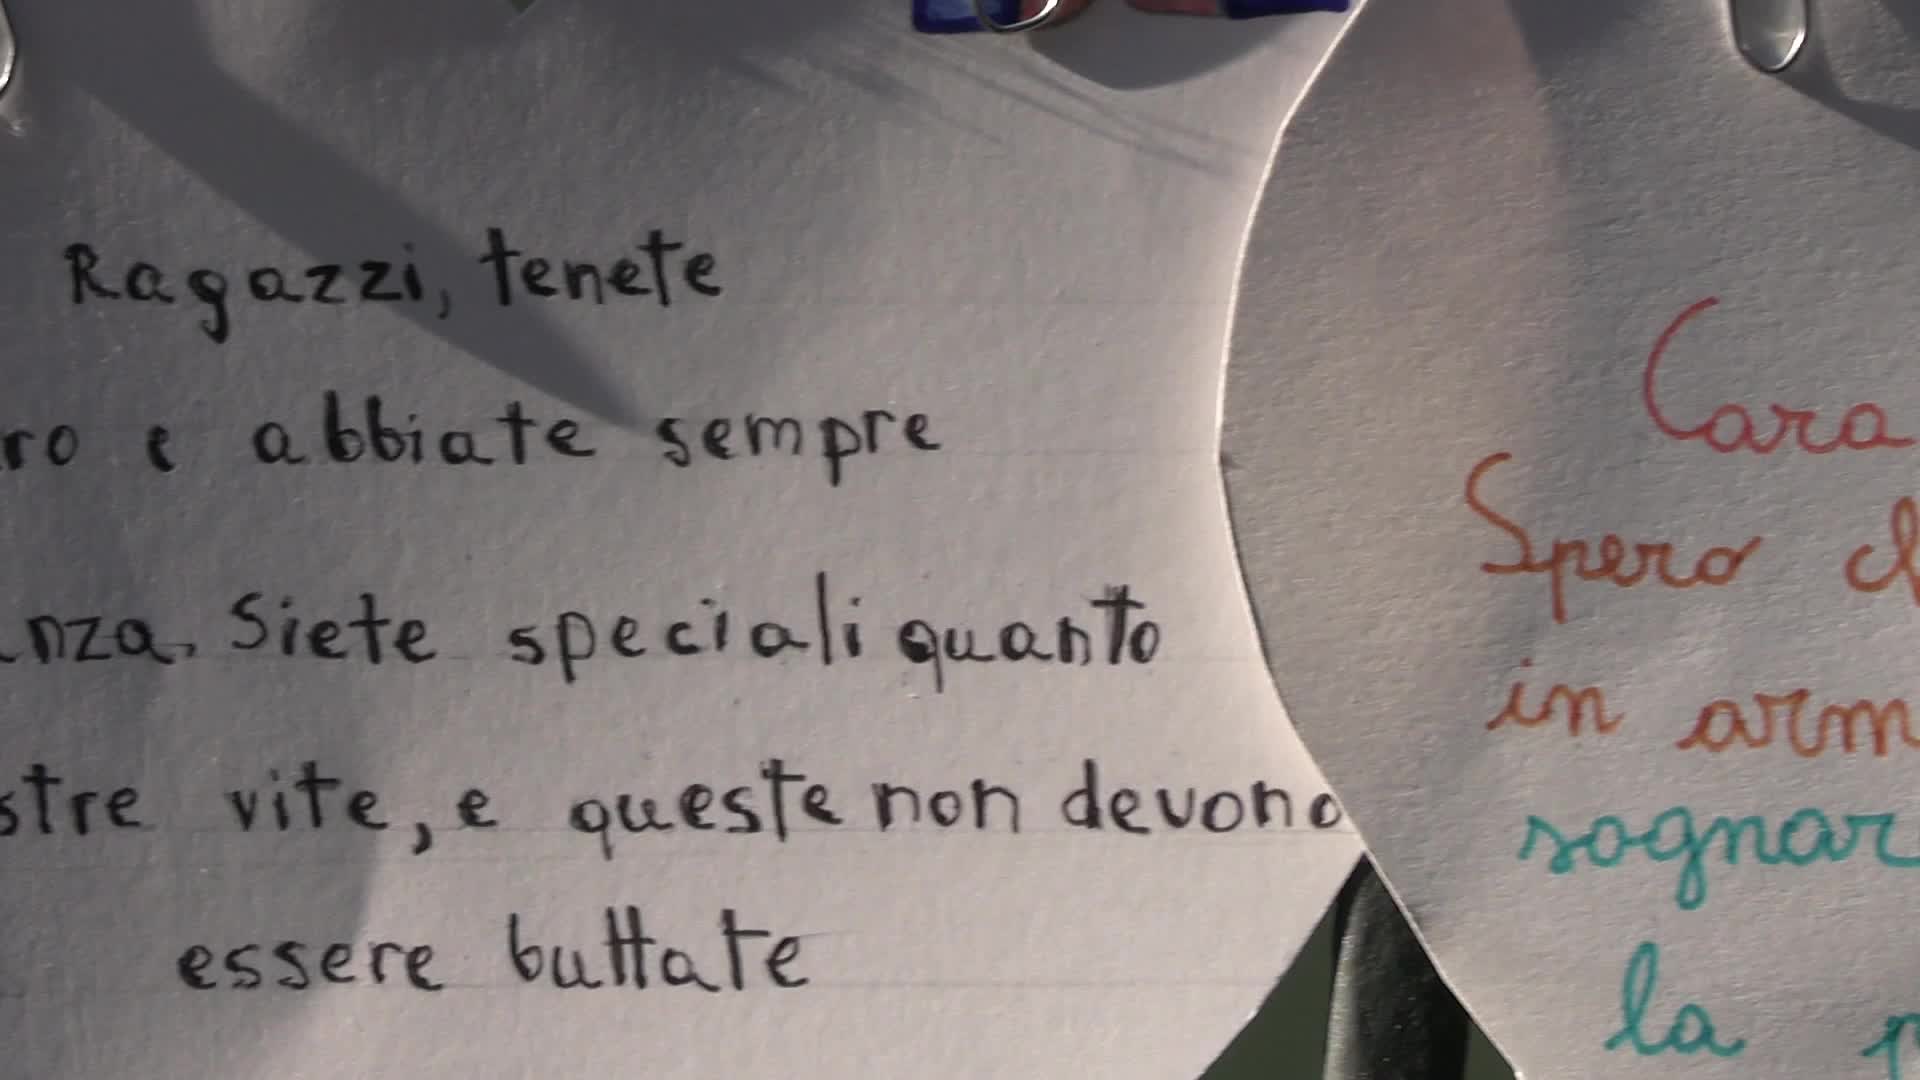 Ragazzi, tenete
ro e abbiate sempre
nza. Siete speciali quanto
stre vite, e queste non devono
essere buttate
Cara
Spero
in arm
sognar
la